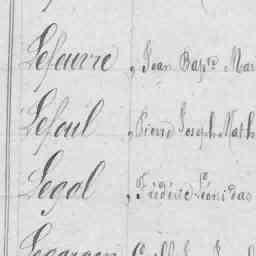 Lefeuvre, Jean Bapte Mar
Lefoul, Pierre Joseph Math
Legal, Frédéric Léonidas